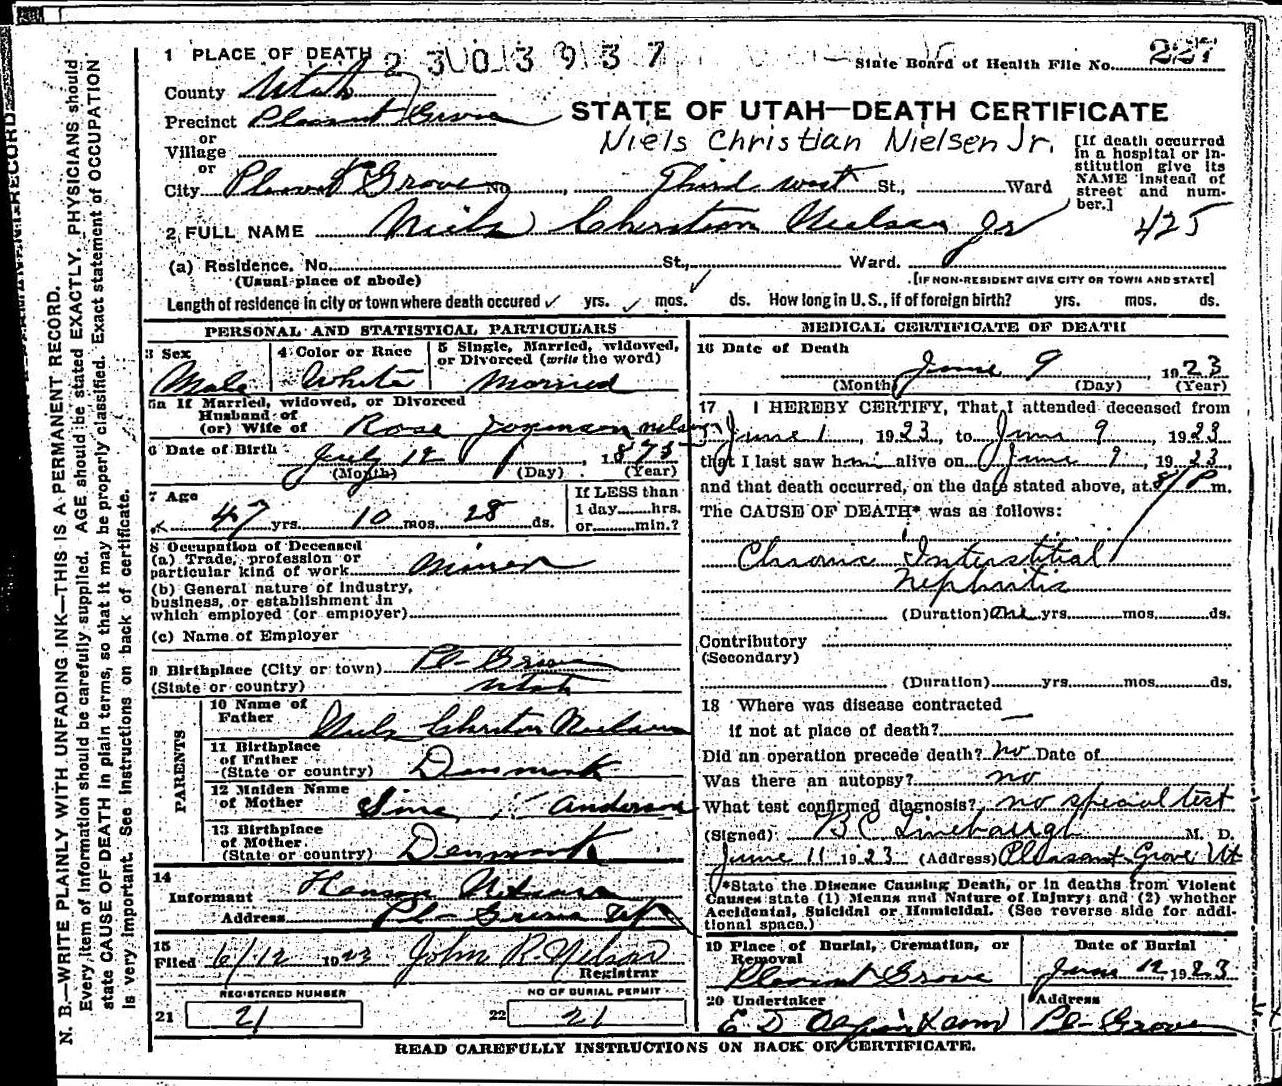 1 PLACE OF DEATH 2303937
State Board of Health File No. 227
County Utah
Precinct Pleasant Grove
STATE OF UTAH—DEATH CERTIFICATE
or
Village
or
Niels Christian Nielsen Jr.
[If death occurred in a hospital or institution give its NAME instead of street and number.]
City Pleasant Grove No. , Third west St., Ward
425
2 FULL NAME Niels Christian Nielsen Jr
(a) Residence. No. St., Ward.
(Usual place of abode) [IF NON-RESIDENT GIVE CITY OR TOWN AND STATE]
Length of residence in city or town where death occured ✓ yrs. ✓ mos. ✓ ds. How long in U. S., if of foreign birth? yrs. mos. ds.
PERSONAL AND STATISTICAL PARTICULARS
3 Sex
Male
4 Color or Race
White
5 Single, Married, widowed, or Divorced (write the word)
Married
5a If Married, widowed, or Divorced
Husband of
(or) Wife of Rose Nelson
6 Date of Birth July 12, 1875
(Month) (Day) (Year)
7 Age
47 yrs. 10 mos. 28 ds.
If LESS than
1 day......hrs.
or......min.?
8 Occupation of Deceased
(a) Trade, profession or
particular kind of work Miner
(b) General nature of Industry,
business, or establishment in
which employed (or employer)
(c) Name of Employer
9 Birthplace (City or town) Pl- Grove
(State or country) Utah
PARENTS
10 Name of
Father Niels Christian Nielsen
11 Birthplace
of Father
(State or country) Denmark
12 Maiden Name
of Mother Sine Anderson
13 Birthplace
of Mother
(State or country) Denmark
14
Informant Hanson
Address Pl- Grove
15
Filed 6/12 1923 John R. Nelson
Registrar
REGISTERED NUMBER
21 21
NO OF BURIAL PERMIT
22 21
MEDICAL CERTIFICATE OF DEATH
16 Date of Death
June 9, 1923
(Month) (Day) (Year)
17 I HEREBY CERTIFY, That I attended deceased from
June 1, 1923, to June 9, 1923
that I last saw him alive on June 9, 1923,
and that death occurred, on the date stated above, at 8/P m.
The CAUSE OF DEATH* was as follows:
Chronic Interstitial
Nephritis
(Duration) one yrs. mos. ds.
Contributory
(Secondary)
(Duration) yrs. mos. ds.
18 Where was disease contracted
if not at place of death? —
Did an operation precede death? no Date of
Was there an autopsy? no
What test confirmed diagnosis? no special test
(Signed) B C Linebaugh M. D.
June 11 1923 (Address) Pleasant Grove Ut
*State the Disease Causing Death, or in deaths from Violent
Causes state (1) Means and Nature of Injury; and (2) whether
Accidental, Suicidal or Homicidal. (See reverse side for addi-
tional space.)
19 Place of Burial, Cremation, or
Removal
Pleasant Grove
Date of Burial
June 12 1923
20 Undertaker
E D
Address
Pl- Grove
READ CAREFULLY INSTRUCTIONS ON BACK OF CERTIFICATE.
N. B.—WRITE PLAINLY WITH UNFADING INK—THIS IS A PERMANENT RECORD.
Every item of information should be carefully supplied. AGE should be stated EXACTLY. PHYSICIANS should
state CAUSE OF DEATH in plain terms, so that it may be properly classified. Exact statement of OCCUPATION
is very important. See instructions on back of certificate.